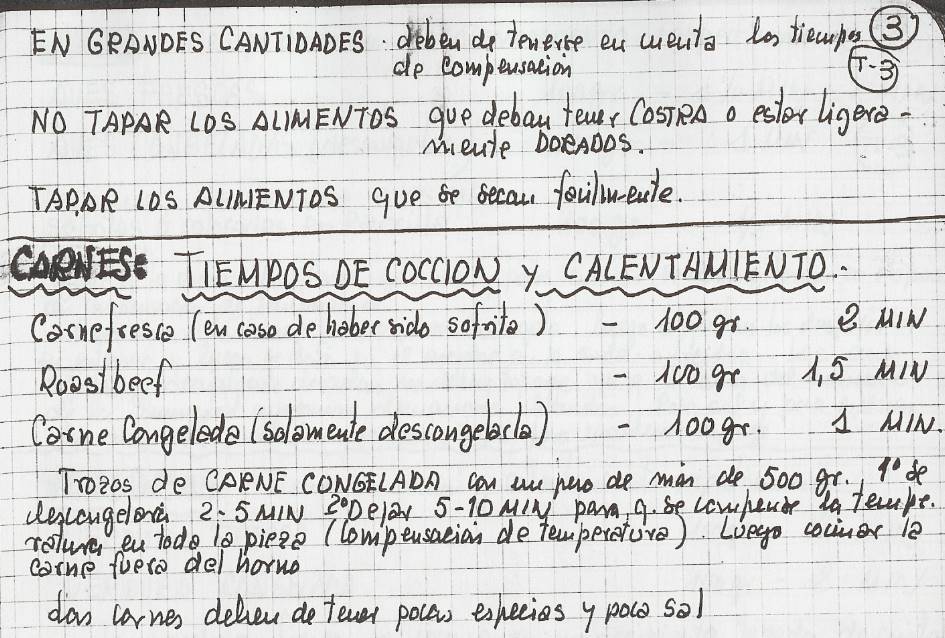 EN GRANDES CANTIDADES deben de tenerse en cuenta los tiempos 3
de compensación T-3
NO TAPAR LOS ALIMENTOS que deban tener COSTRA o estar ligera-
mente DORADOS.
TAPAR LOS ALIMENTOS que se secan facilmente.
CARNES: TIEMPOS DE COCCION y CALENTAMIENTO.-
Carne fresca (en caso de haber sido sofrita) - 100 gr. 2 MIN
Roast beef - 100 gr 1,5 MIN
Carne Congelada (solamente descongelarla) - 100 gr. 1 MIN.
Trozos de CARNE CONGELADA con un peso de más de 500 gr. 1º se
descongelará 2-5 MIN 2º Dejar 5-10 MIN para q. se compense la tempe-
ratura en toda la pieza (Compensación de Temperatura). Luego cocinar la
carne fuera del horno
Las carnes deben de tener pocas especias y poca sal